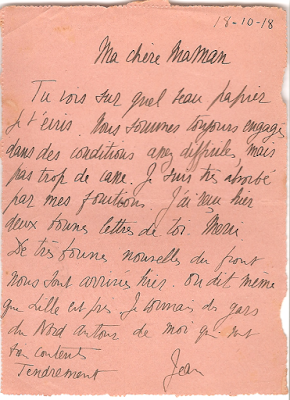 18-10-18
Ma chère Maman
Tu vois sur quel beau papier
je t'écris. Nous sommes toujours engagés
dans des conditions assez difficiles, mais
pas trop de casse. Je suis très absorbé
par mes fonctions. J'ai reçu hier
deux bonnes lettres de toi. Merci
De très bonnes nouvelles du front
nous sont arrivées hier. On dit même
que Lille est pris. Je connais des gars
du Nord autour de moi qui sont
bien contents
Tendrement
Jean